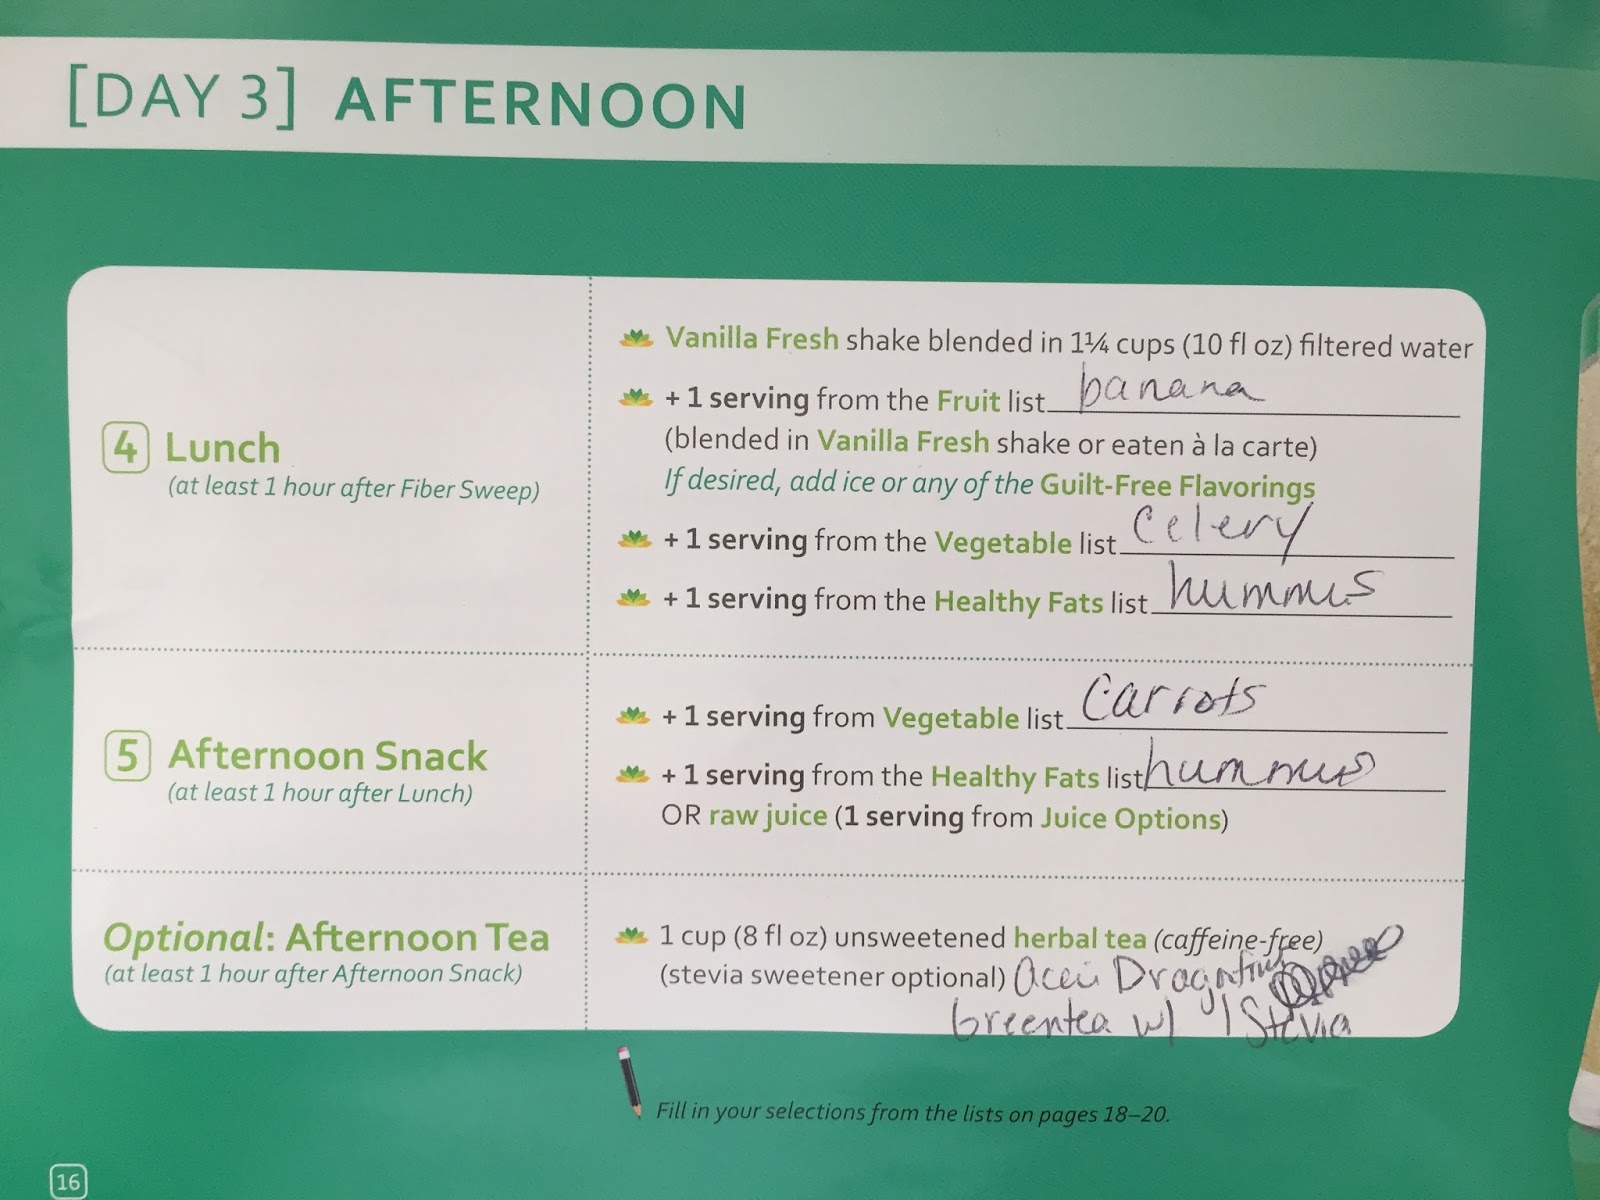 [DAY 3] AFTERNOON
4 Lunch
(at least 1 hour after Fiber Sweep)
Vanilla Fresh shake blended in 1¼ cups (10 fl oz) filtered water
+ 1 serving from the Fruit list banana
(blended in Vanilla Fresh shake or eaten à la carte)
If desired, add ice or any of the Guilt-Free Flavorings
+ 1 serving from the Vegetable list Celery
+ 1 serving from the Healthy Fats list hummus
5 Afternoon Snack
(at least 1 hour after Lunch)
+ 1 serving from Vegetable list Carrots
+ 1 serving from the Healthy Fats list hummus
OR raw juice (1 serving from Juice Options)
Optional: Afternoon Tea
(at least 1 hour after Afternoon Snack)
1 cup (8 fl oz) unsweetened herbal tea (caffeine-free)
(stevia sweetener optional) Acai Dragnfruit
Greentea w/ 1 Stevia
Fill in your selections from the lists on pages 18–20.
16